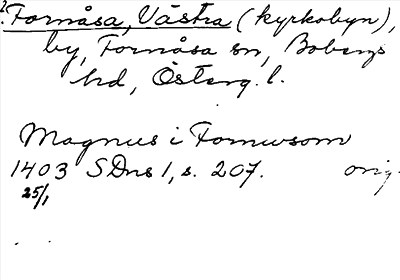 2. Fornåsa, Västra (kyrkobyn),
by, Fornåsa sn, Bobergs
hd, Österg. l.
Magnus i Fornusom
1403 SDns 1, s. 207. orig.
25/1